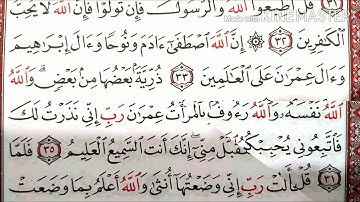 ٣١ قُلْ أَطِيعُوا۟ ٱللَّهَ وَٱلرَّسُولَ فَإِن تَوَلَّوْا۟ فَإِنَّ ٱللَّهَ لَا يُحِبُّ
Made with KINEMASTER
ٱلْكَٰفِرِينَ ٣٢ ۞ إِنَّ ٱللَّهَ ٱصْطَفَىٰٓ ءَادَمَ وَنُوحًا وَءَالَ إِبْرَٰهِيمَ
وَءَالَ عِمْرَٰنَ عَلَى ٱلْعَٰلَمِينَ ٣٣ ذُرِّيَّةًۢ بَعْضُهَا مِنۢ بَعْضٍ وَٱللَّهُ
ٱللَّهُ نَفْسَهُۥ وَٱللَّهُ رَءُوفٌۢ ٱمْرَأَتُ عِمْرَٰنَ رَبِّ إِنِّى نَذَرْتُ لَكَ
فَٱتَّبِعُونِى يُحْبِبْكُمُ مِنِّىٓ إِنَّكَ أَنتَ ٱلسَّمِيعُ ٱلْعَلِيمُ ٣٥ فَلَمَّا
٣١ قُلْ رَبِّ إِنِّى وَضَعْتُهَآ أُنثَىٰ وَٱللَّهُ أَعْلَمُ بِمَا وَضَعَتْ